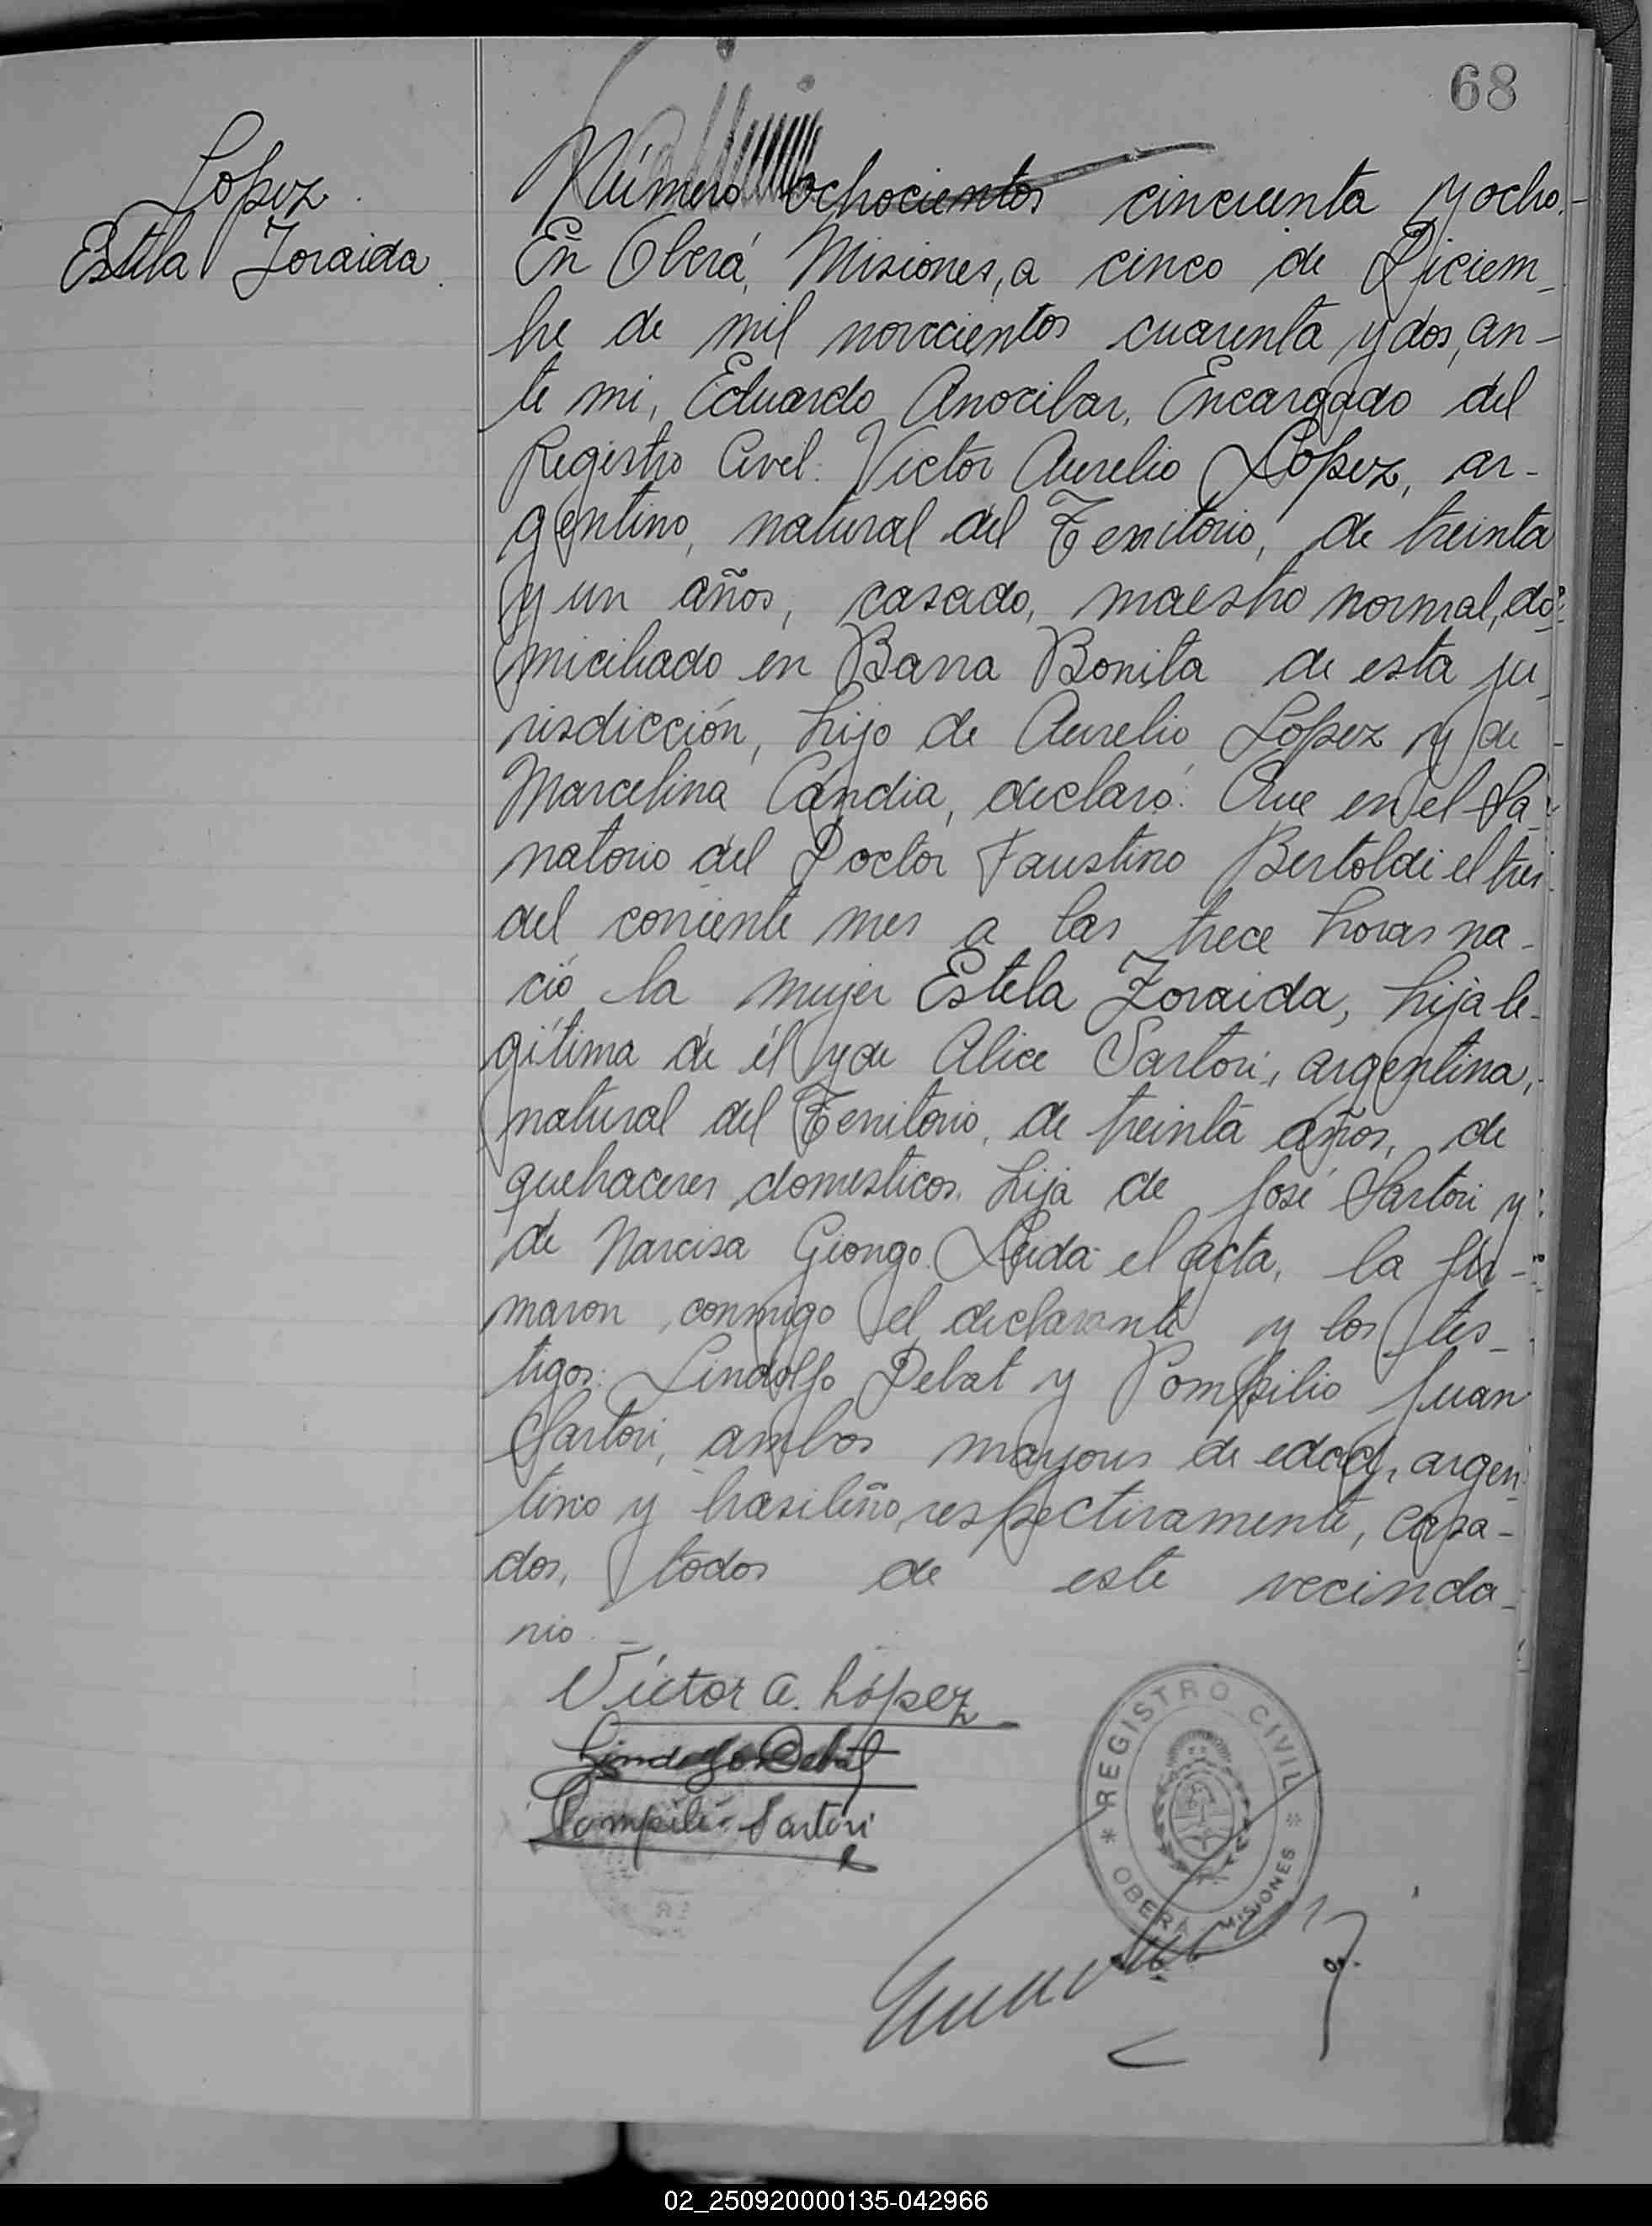 68
Lopez
Estela Zoraida.
Número ochocientos cincuenta y ocho.-
En Oberá, Misiones, a cinco de Diciem-
bre de mil novecientos cuarenta y dos, an-
te mi, Eduardo Anocibar, Encargado del
Registro Civil: Victor Aurelio Lopez, ar-
gentino, natural del Territorio, de treinta
y un años, casado, maestro normal, do-
miciliado en Barra Bonita de esta ju-
risdicción, hijo de Aurelio Lopez y de
Marcelina Candia, declaró: Que en el Sa-
natorio del Doctor Faustino Bertoldi el tres
del corriente mes a las trece horas na-
ció la mujer Estela Zoraida, hija le-
gítima de él y de Alice Sartori, argentina,
natural del Territorio, de treinta años, de
quehaceres domesticos, hija de José Sartori y
de Narcisa Giongo. Leida el acta, la fir-
maron conmigo el declarante y los tes-
tigos: Lindolfo Debat y Pompilio Juan
Sartori, ambos mayores de edad, argen-
tino y brasileño, respectivamente, casa-
dos, todos de este vecinda-
rio.-
Víctor A. López
Lindolfo Debat
Pompilio Sartori
REGISTRO CIVIL
* OBERÁ - MISIONES *
02_250920000135-042966